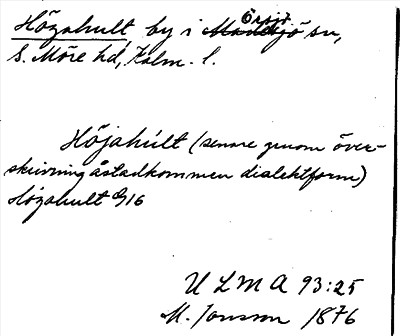 Örsjö
Högahult by i Madesjö sn,
S. Möre hd, Kalm. l.
Höjahult (senare genom över-
skrivning åstadkommen dialektform)
Högahult G16
ULMA 93:25
M. Jonsson 1876